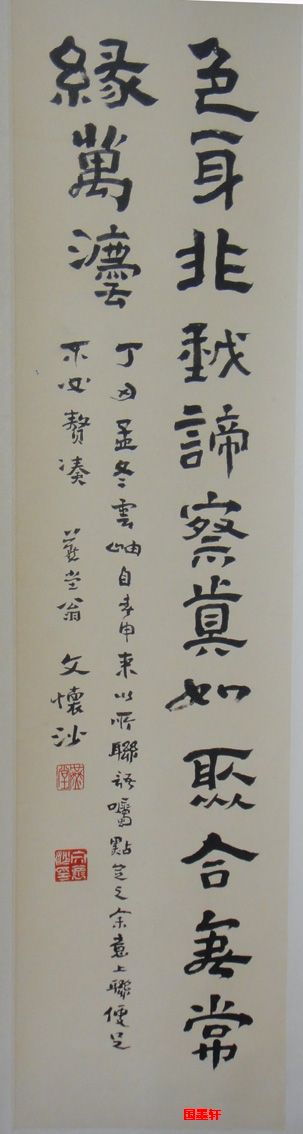 色身非我諦察真如聚合無常
緣萬灋
丁丑孟冬雲岫自孝來以所聯語囑點定之余意上聯便足
不必贅湊 燕堂翁 文懷沙
燕堂
国墨轩